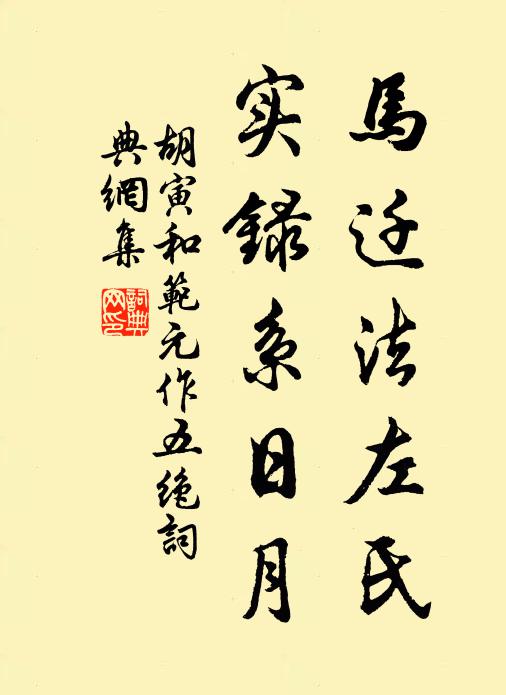 馬迁法左氏
实録系日月
胡寅和範元作五绝詞
典網集
詞典
网印